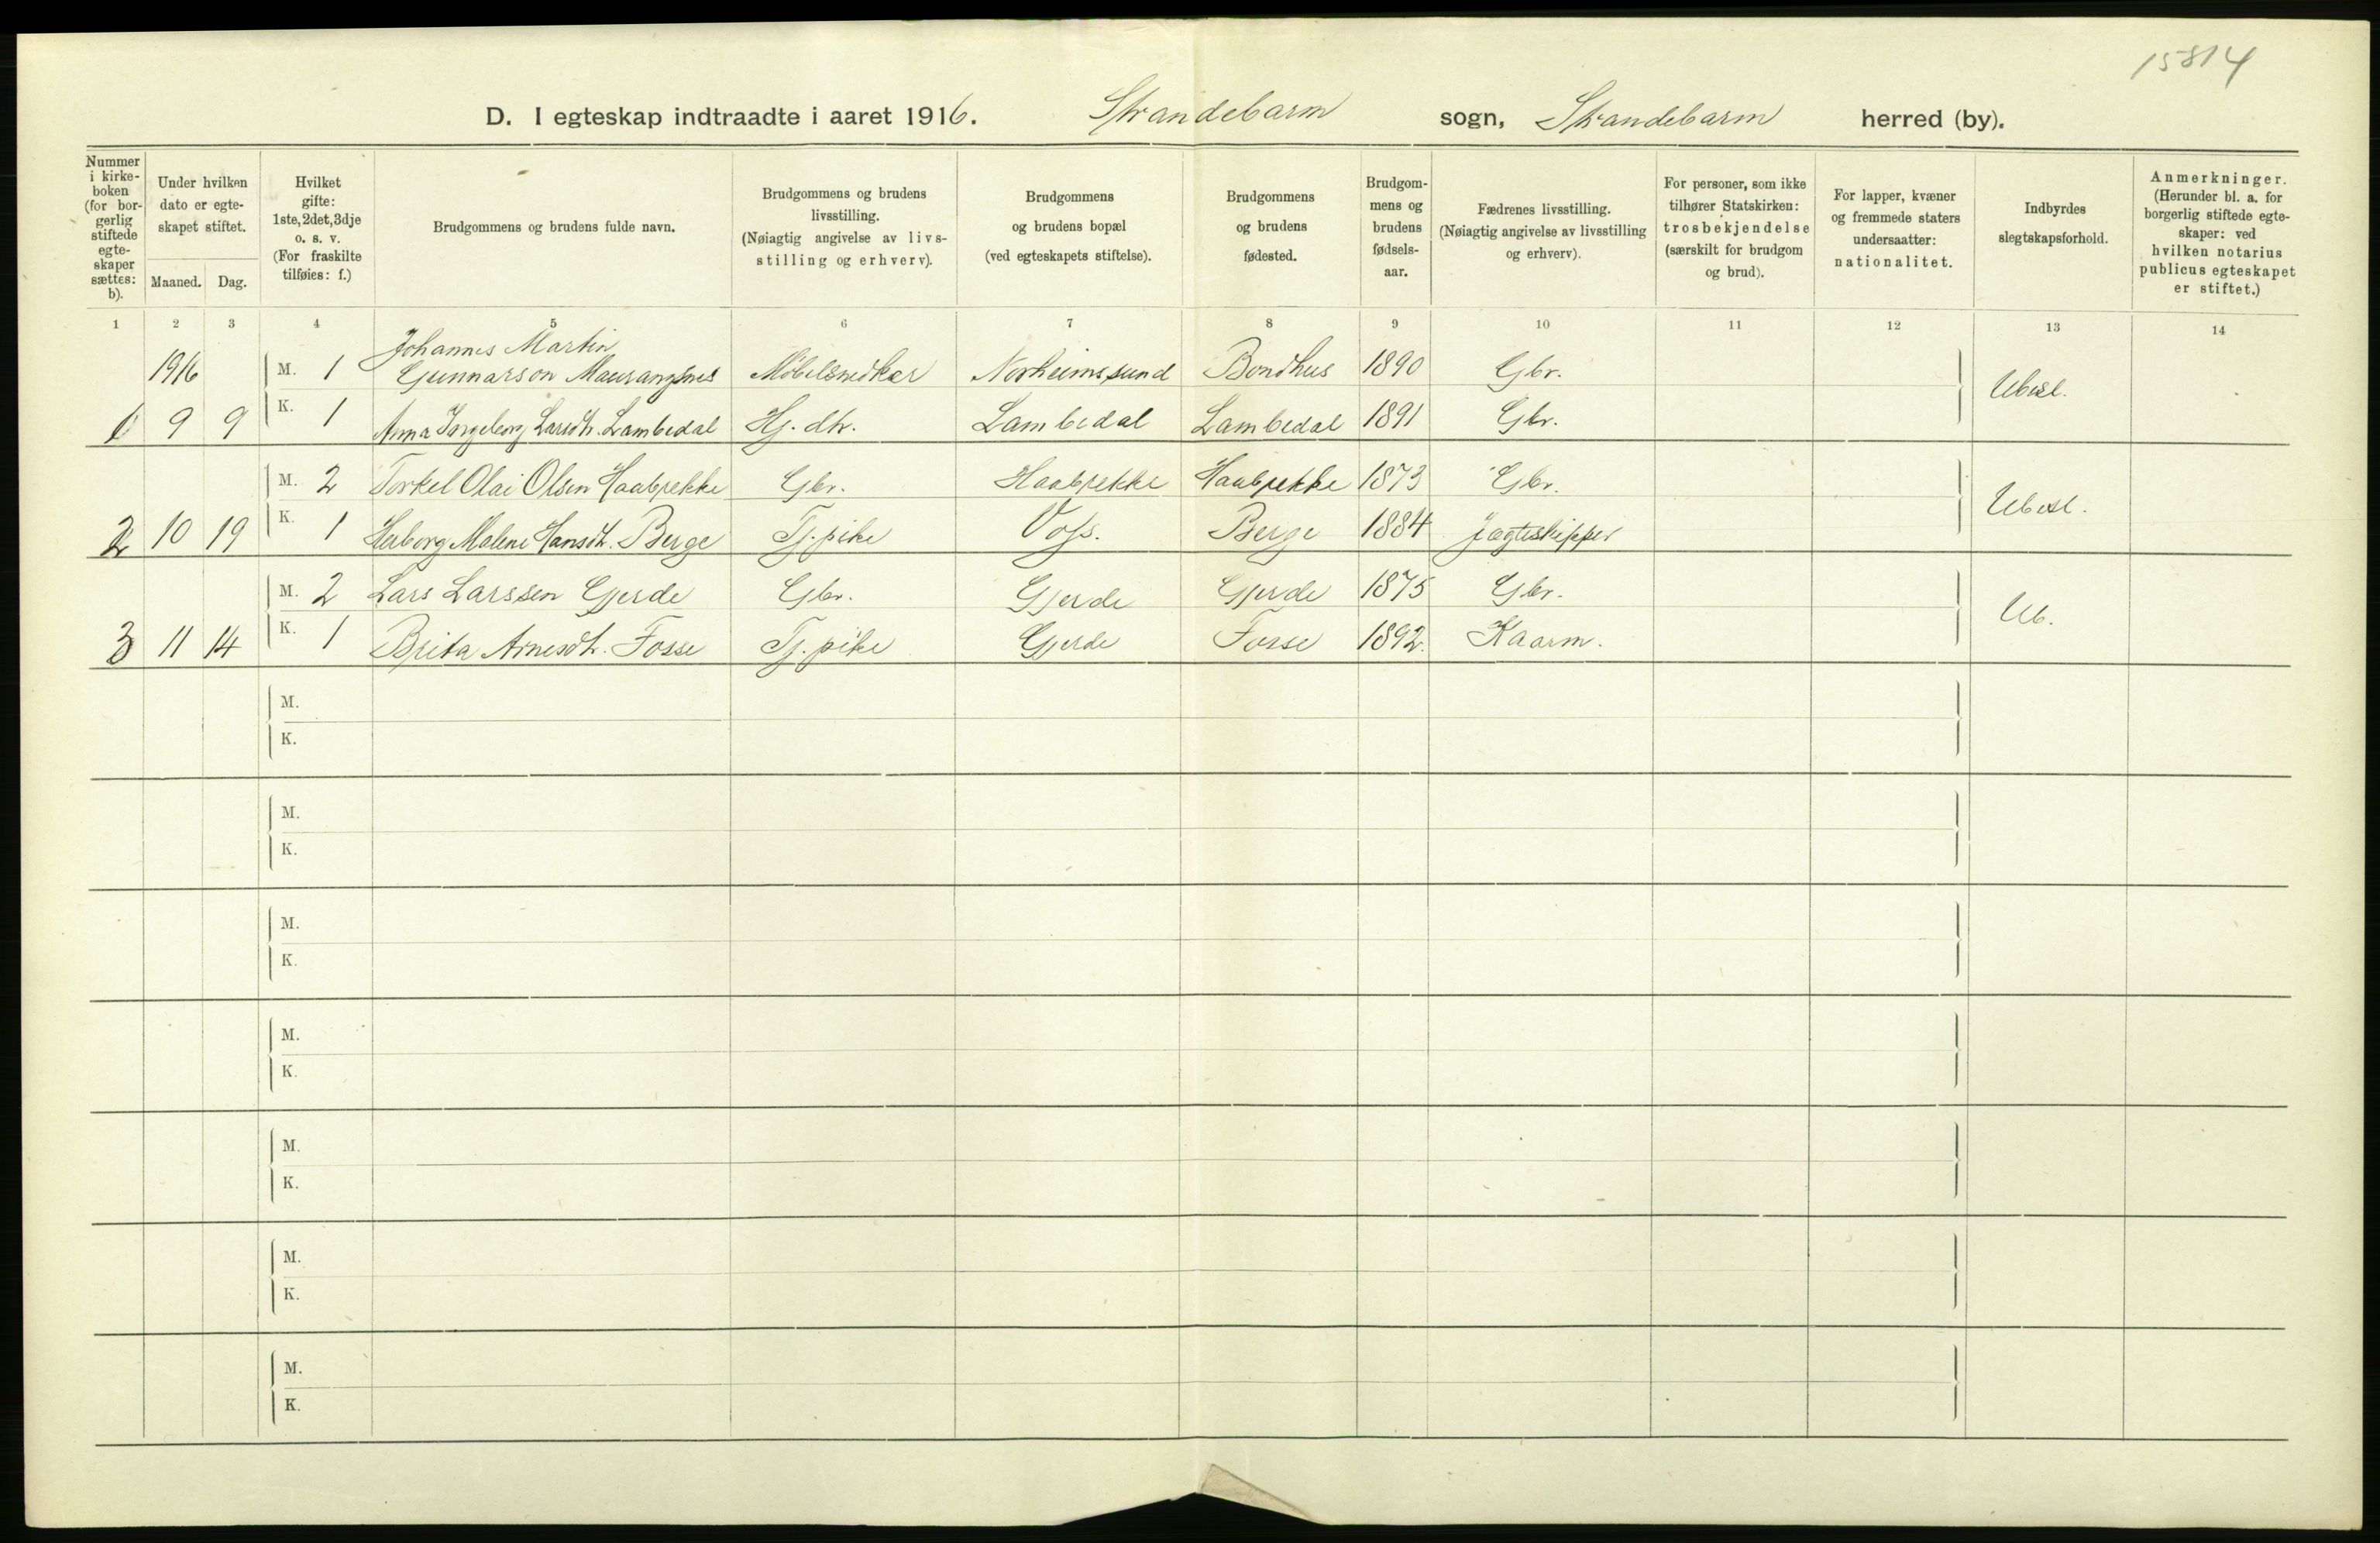 15814
D. I egteskap indtraadte i aaret 1916. Strandebarm sogn, Strandebarm herred (by).
Nummer i kirke- boken (for bor- gerlig stiftede egte- skaper sættes: b).
Under hvilken dato er egte- skapet stiftet.
Maaned. Dag.
Hvilket gifte: 1ste, 2det, 3dje o. s. v. (For fraskilte tilføies: f.)
Brudgommens og brudens fulde navn.
Brudgommens og brudens livsstilling. (Nøiagtig angivelse av livs- stilling og erhverv).
Brudgommens og brudens bopæl (ved egteskapets stiftelse).
Brudgommens og brudens fødested.
Brudgom- mens og brudens fødsels- aar.
Fædrenes livsstilling. (Nøiagtig angivelse av livsstilling og erhverv).
For personer, som ikke tilhører Statskirken: trosbekjendelse (særskilt for brudgom og brud).
For lapper, kvæner og fremmede staters undersaatter: nationalitet.
Indbyrdes slegtskapsforhold.
Anmerkninger. (Herunder bl. a. for borgerlig stiftede egte- skaper: ved hvilken notarius publicus egteskapet er stiftet.)
1 2 3 4 5 6 7 8 9 10 11 12 13 14
Johannes Martin
1916 M. 1 Gunnarson Maurangsnes Møbelsnedker Norheimssund Bondhus 1890 Gbr. Ubesl.
1 9 9 K. 1 Anna Ingeborg Larsdtr. Lambedal Hj. dtr. Lambedal Lambedal 1891 Gbr.
M. 2 Torkel Olai Olsen Haabrekke Gbr. Haabrekke Haabrekke 1873 Gbr. Ubesl.
2 10 19 K. 1 Herborg Malene Hansdt. Berge Tj. pike Voss. Berge 1884 Jægteskipper
M. 2 Lars Larssen Gjerde Gbr. Gjerde Gjerde 1875 Gbr. Ub.
3 11 14 K. 1 Brita Arnesdt. Fosse Tj. pike Gjerde Fosse 1892. Kaarm.
M.
K.
M.
K.
M.
K.
M.
K.
M.
K.
M.
K.
M.
K.